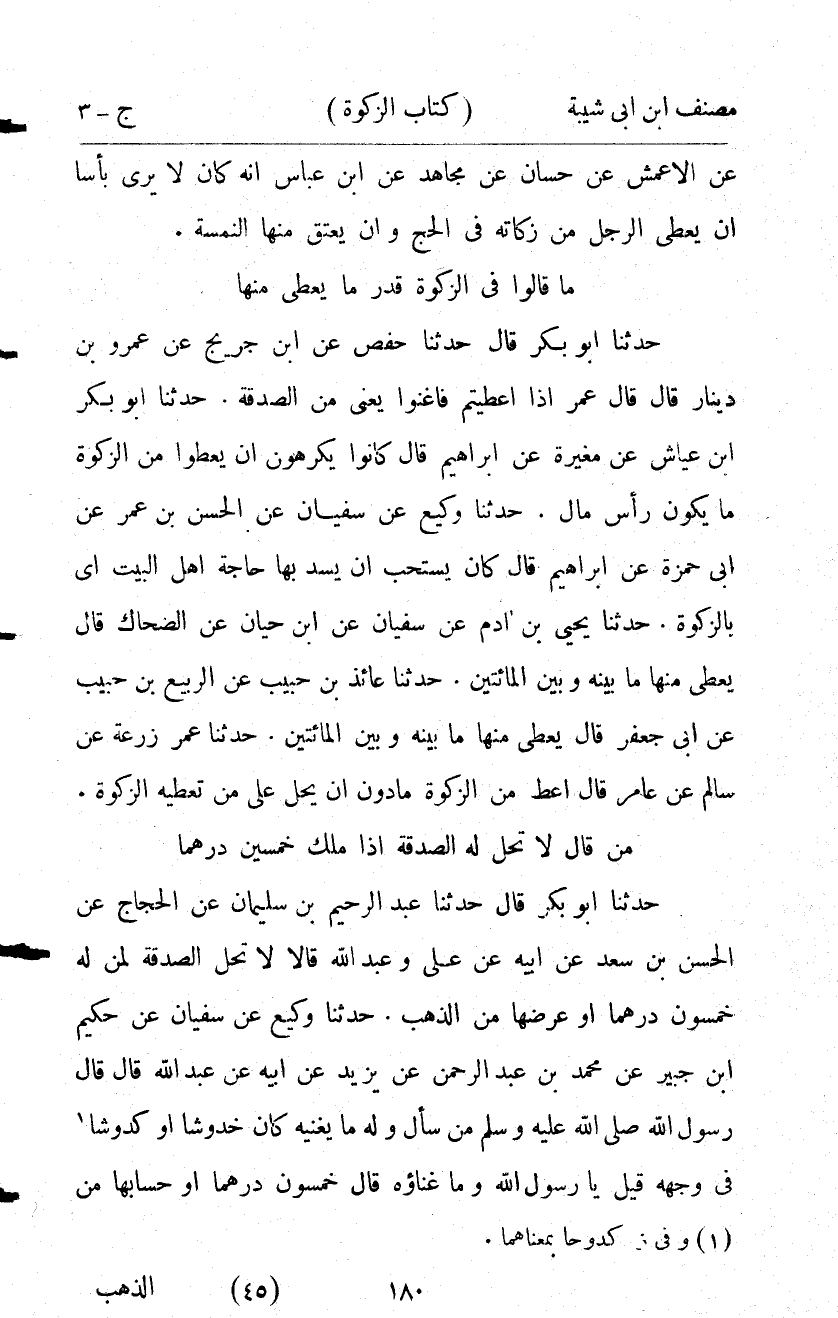 مصنف ابن ابى شيبة ( كتاب الزكوة ) ج - ٣
عن الاعمش عن حسان عن مجاهد عن ابن عباس انه كان لا يرى بأسا
ان يعطى الرجل من زكاته فى الحج و ان يعتق منها النمسة .
ما قالوا فى الزكوة قدر ما يعطى منها
حدثنا ابو بكر قال حدثنا حفص عن ابن جريج عن عمرو بن
دينار قال قال عمر اذا اعطيتم فاغنوا يعنى من الصدقة . حدثنا ابو بكر
ابن عياش عن مغيرة عن ابراهيم قال كانوا يكرهون ان يعطوا من الزكوة
ما يكون رأس مال . حدثنا وكيع عن سفيان عن الحسن بن عمر عن
ابى حمزة عن ابراهيم قال كان يستحب ان يسد بها حاجة اهل البيت اى
بالزكوة . حدثنا يحيى بن ادم عن سفيان عن ابن حيان عن الضحاك قال
يعطى منها ما بينه و بين المائتين . حدثنا عائذ بن حبيب عن الربيع بن حبيب
عن ابى جعفر قال يعطى منها ما بينه و بين المائتين . حدثنا عمر زرعة عن
سالم عن عامر قال اعط من الزكوة مادون ان يحل على من تعطيه الزكوة .
من قال لا تحل له الصدقة اذا ملك خمسين درهما
حدثنا ابو بكر قال حدثنا عبد الرحيم بن سليمان عن الحجاج عن
الحسن بن سعد عن ابيه عن على و عبد الله قالا لا تحل الصدقة لمن له
خمسون درهما او عرضها من الذهب . حدثنا وكيع عن سفيان عن حكيم
ابن جبير عن محمد بن عبد الرحمن عن يزيد عن ابيه عن عبد الله قال قال
رسول الله صلى الله عليه و سلم من سأل و له ما يغنيه كان خدوشا او كدوشا ١
فى وجهه قيل يا رسول الله و ما غناؤه قال خمسون درهما او حسابها من
(١) و فى ز كدوحا بمعناهما .
١٨٠ (٤٥) الذهب